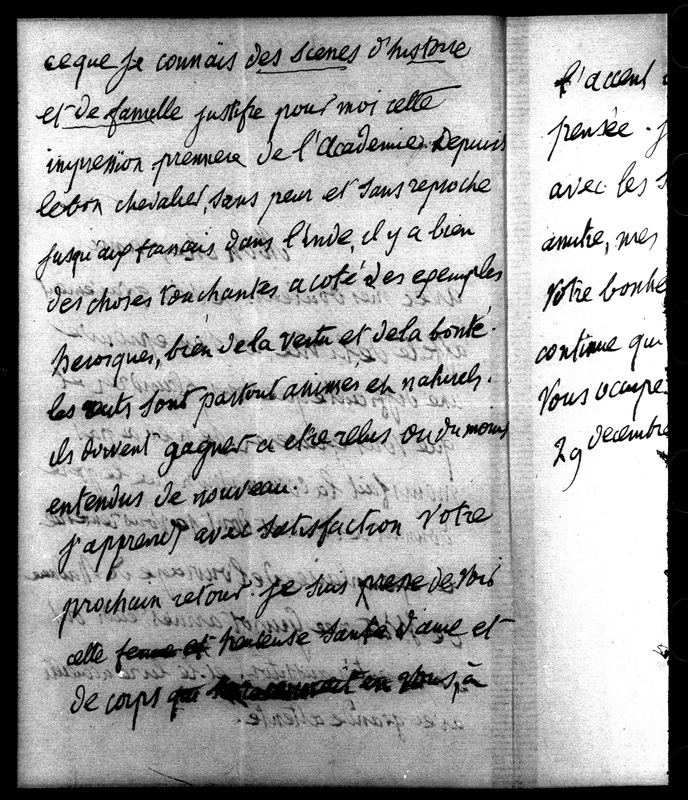 ce que je connais des scenes d'histoire
et de famille justifie pour moi cette
impression premiere de l'Academie. Depuis
le bon chevalier, sans peur et sans reproche
jusqu'aux francais dans l'inde, il y a bien
des choses touchantes a coté des exemples
heroiques, bien de la vertu et de la bonté.
les recits sont partout animés et naturels.
ils doivent gagner a etre relus ou du moins
entendus de nouveau.
j'apprends avec satisfaction votre
prochain retour. je suis pressé de voir
cette ferme et heureuse santé d'ame et
de corps qui en vous, à
l'accent
pensée. j
avec les s
amitié, mes
votre bonhe
continue qui
vous occupe
29 decembre